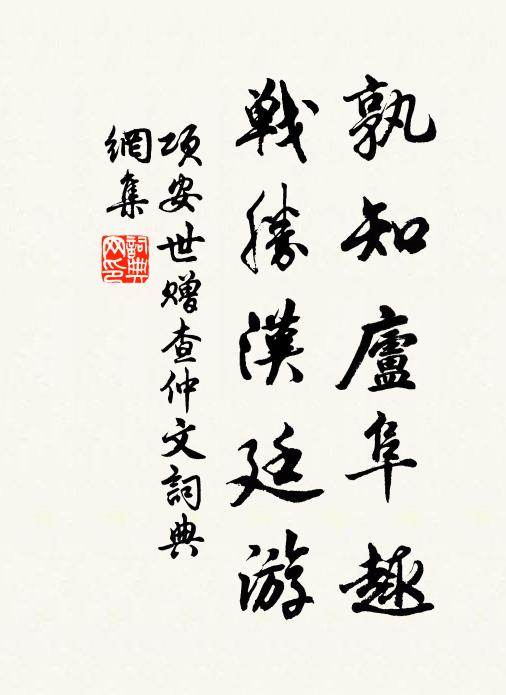 孰知廬阜趣
戰勝漢廷游
項安世贈查仲文詞典
網集
詞典
网印